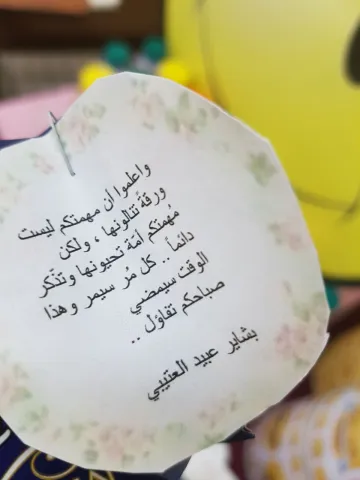 واعلموا أن مهمتكم ليست
ورقةً تنالونها ، ولكن
مُهمتكم أمّة تحيونها وتذّكر
دائماً .. كل مُر سيمر وهذا
الوقت سيمضي
صباحكم تفاؤل ..
بشاير عبيد العتيبي